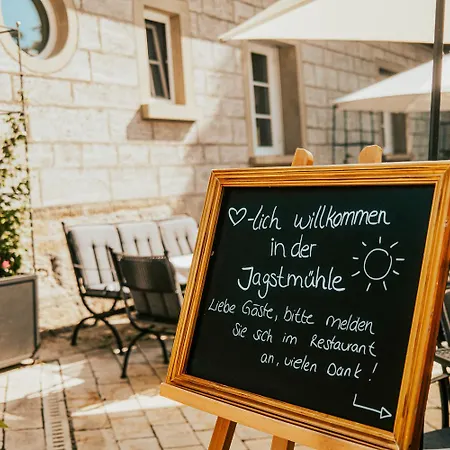 ♡-lich willkommen
in der
Jagstmühle
Liebe Gäste, bitte melden
Sie sch im Restaurant
an, vielen Dank!